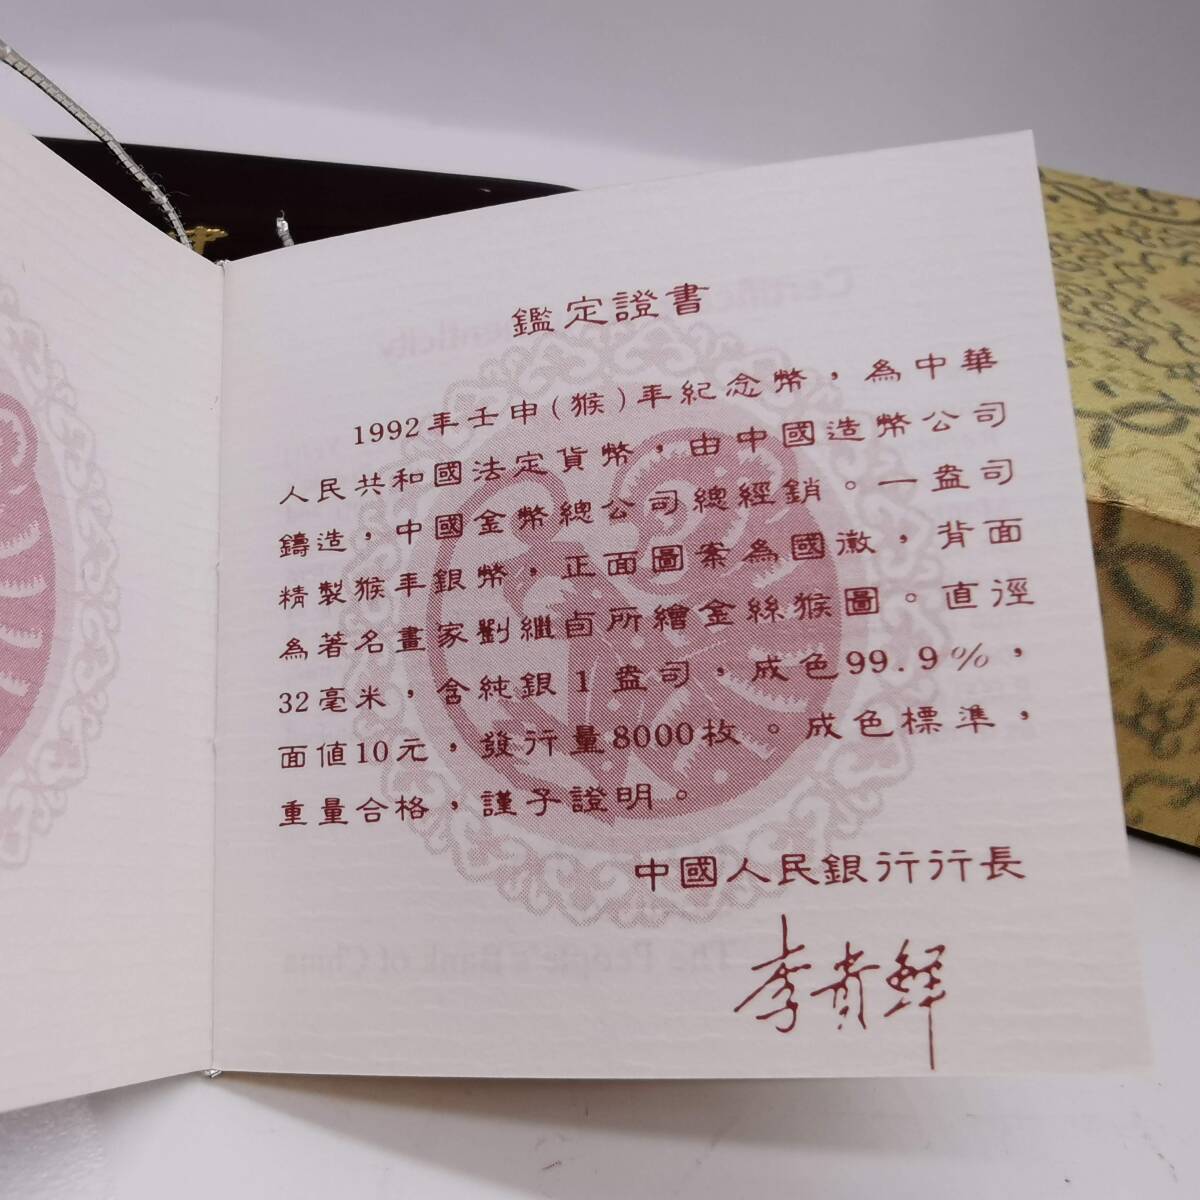 鑑定證書
1992年壬申(猴)年紀念幣，為中華
人民共和國法定貨幣，由中國造幣公司
鑄造，中國金幣總公司總經銷。一盎司
精製猴年銀幣，正面圖案為國徽，背面
為著名畫家劉繼卣所繪金絲猴圖。直徑
32毫米，含純銀1盎司，成色99.9%，
面值10元，發行量8000枚。成色標準，
重量合格，謹予證明。
中國人民銀行行長
李貴鲜